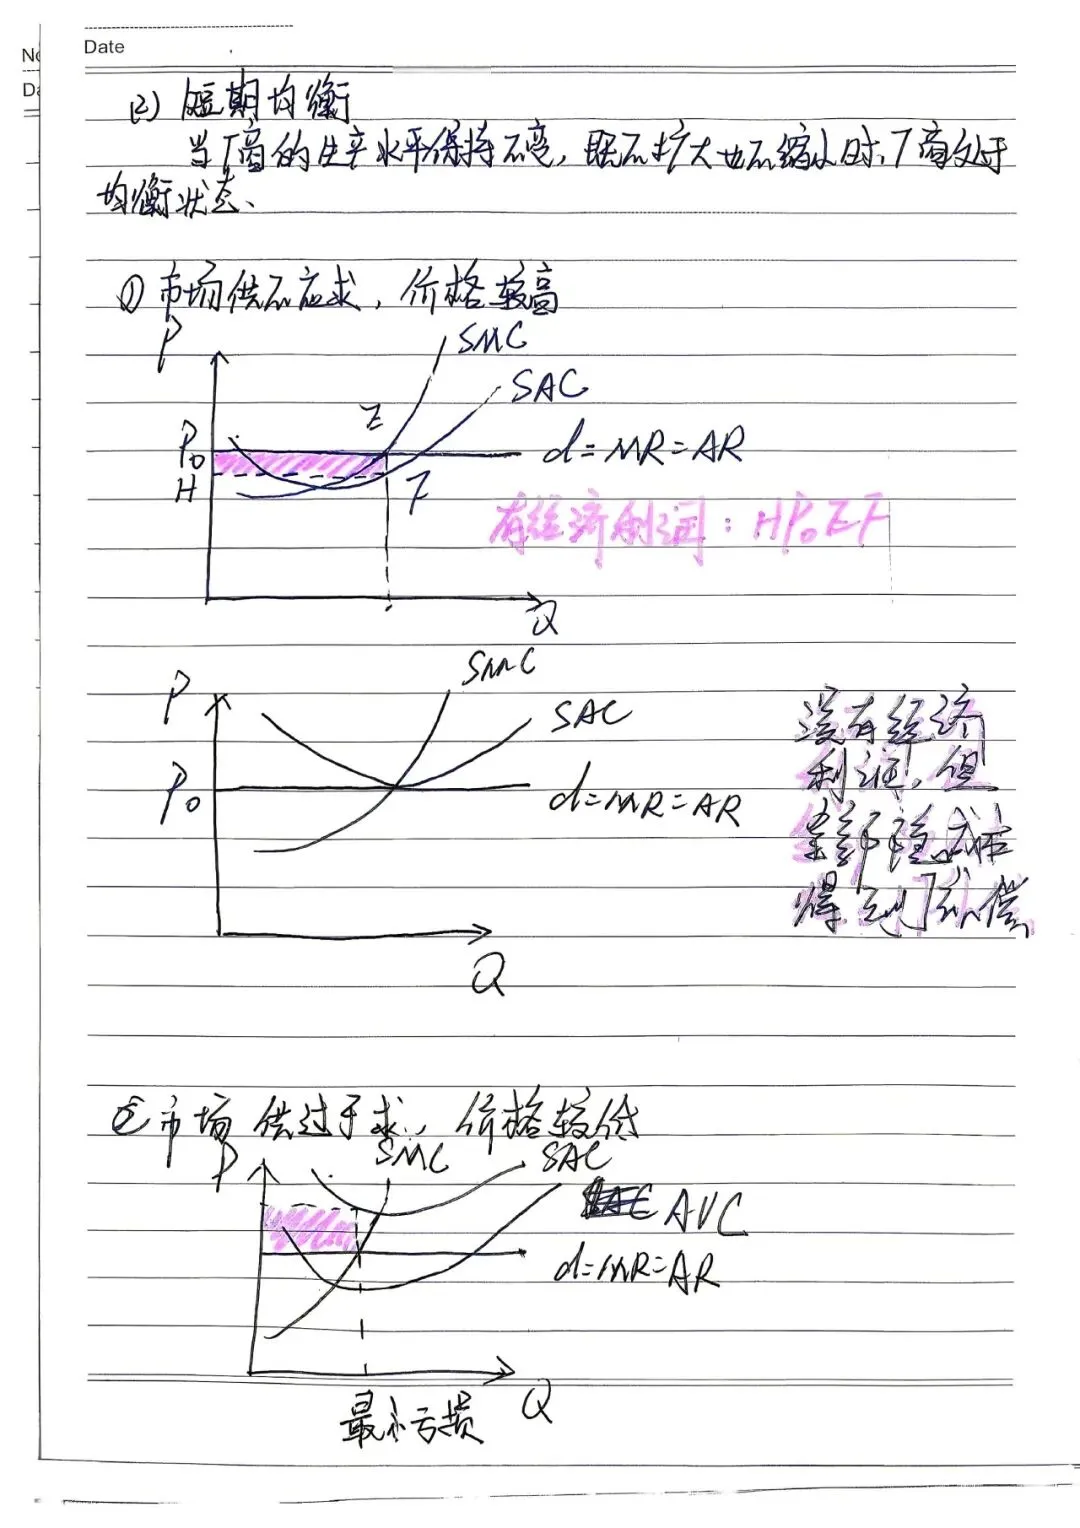 No
Da
Date
(2) 短期均衡
当厂商的生产水平保持不变，既不扩大也不缩小时，厂商处于
均衡状态、
① 市场供不应求，价格较高
P
SMC
SAC
E
P₀
d=MR=AR
H
F
有经济利润：HP₀EF
Q
SMC
P
SAC
P₀
d=MR=AR
没有经济
利润，但
全部隐成本
得到了补偿
Q
② 市场供过于求，价格较低
P
SMC
SAC
AVC
d=MR=AR
Q
最小亏损